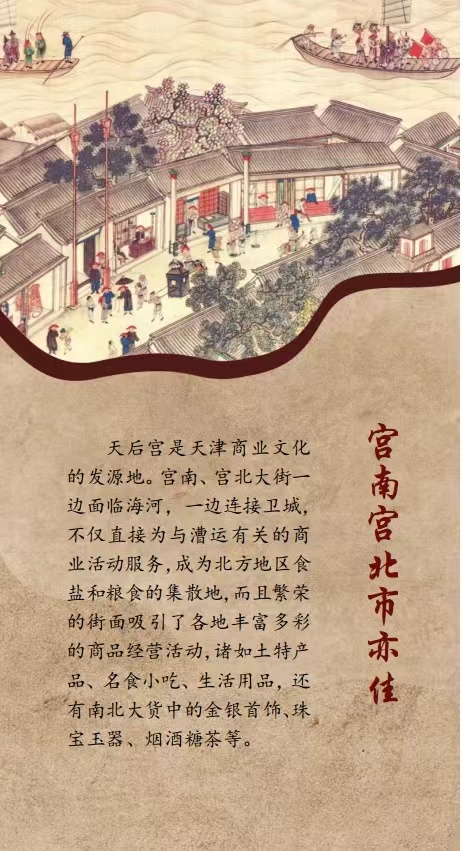 宫南宫北市亦佳
天后宫是天津商业文化
的发源地。宫南、宫北大街一
边面临海河，一边连接卫城，
不仅直接为与漕运有关的商
业活动服务，成为北方地区食
盐和粮食的集散地，而且繁荣
的街面吸引了各地丰富多彩
的商品经营活动，诸如土特产
品、名食小吃、生活用品，还
有南北大货中的金银首饰、珠
宝玉器、烟酒糖茶等。